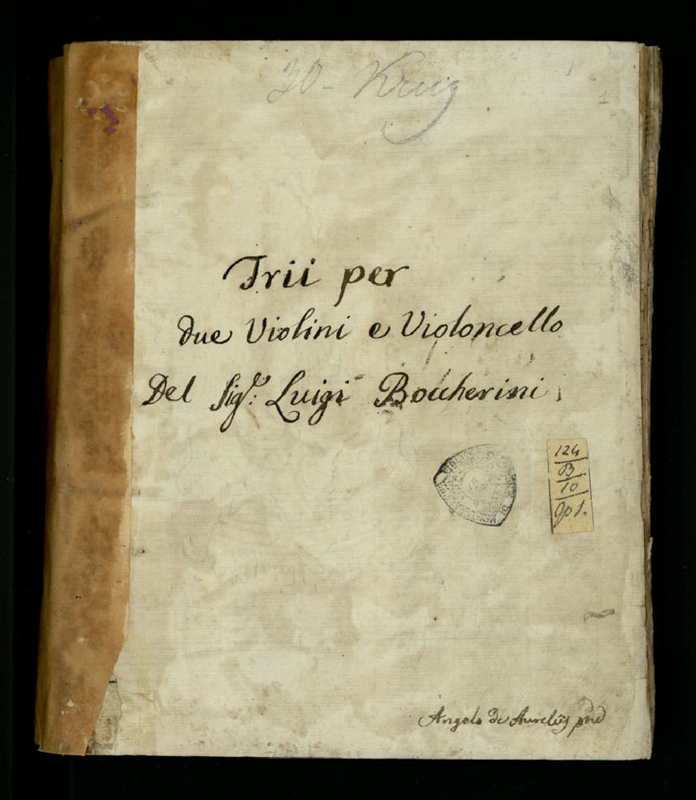 30 - Krug
Trii per
due Violini e Violoncello
Del Sig.r: Luigi Boccherini
124
B
10
Op 1.
Angelo de Aureliis